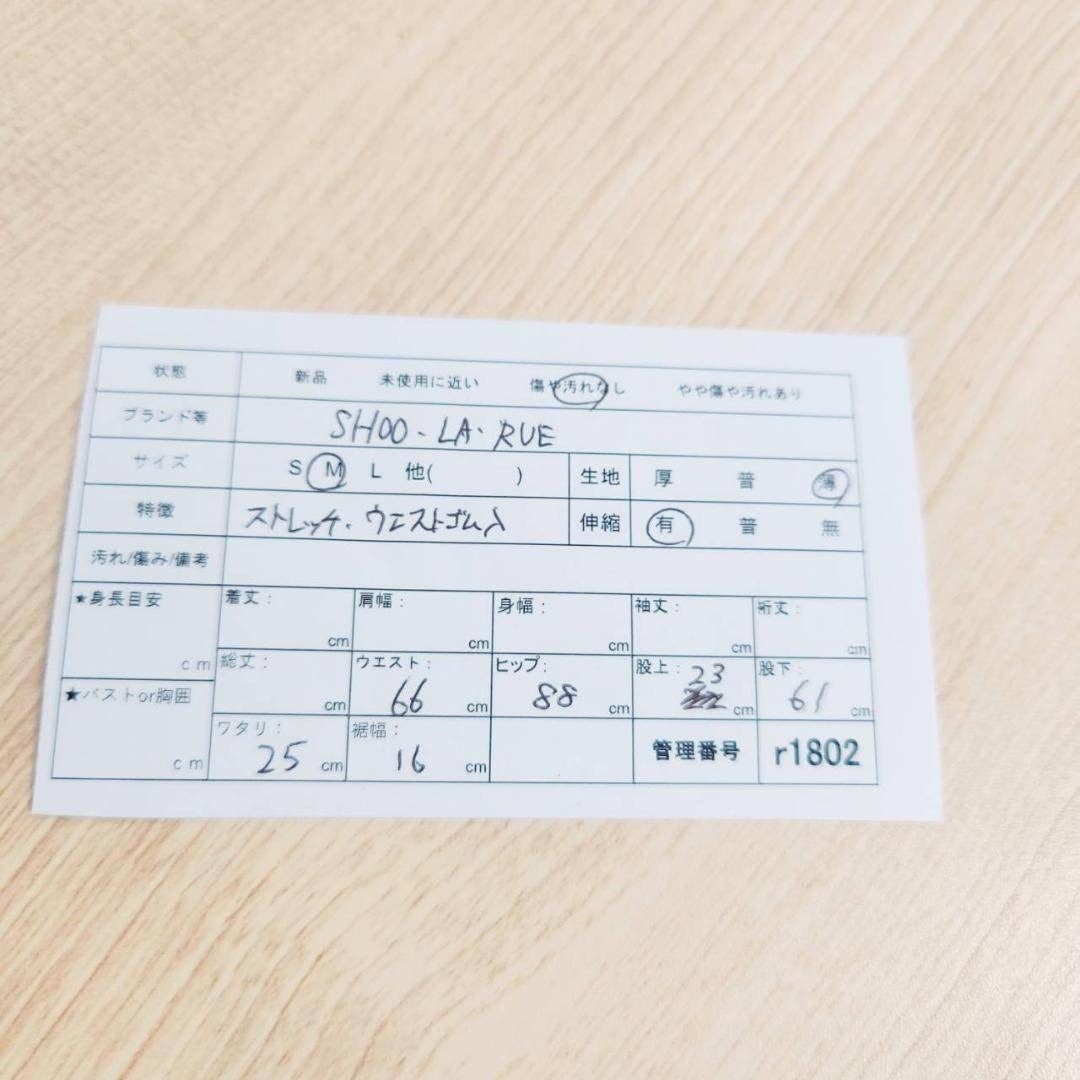 状態 新品 未使用に近い 傷や汚れなし やや傷や汚れあり
ブランド等 SHOO・LA・RUE
サイズ S M L 他( ) 生地 厚 普 薄
特徴 ストレッチ・ウエストゴム入 伸縮 有 普 無
汚れ/傷み/備考
★身長目安 cm 着丈: cm 肩幅: cm 身幅: cm 袖丈: cm 裄丈: cm
総丈: cm ウエスト: 66 cm ヒップ: 88 cm 股上: 23 cm 股下: 61 cm
★バストor胸囲 cm ワタリ: 25 cm 裾幅: 16 cm 管理番号 r1802